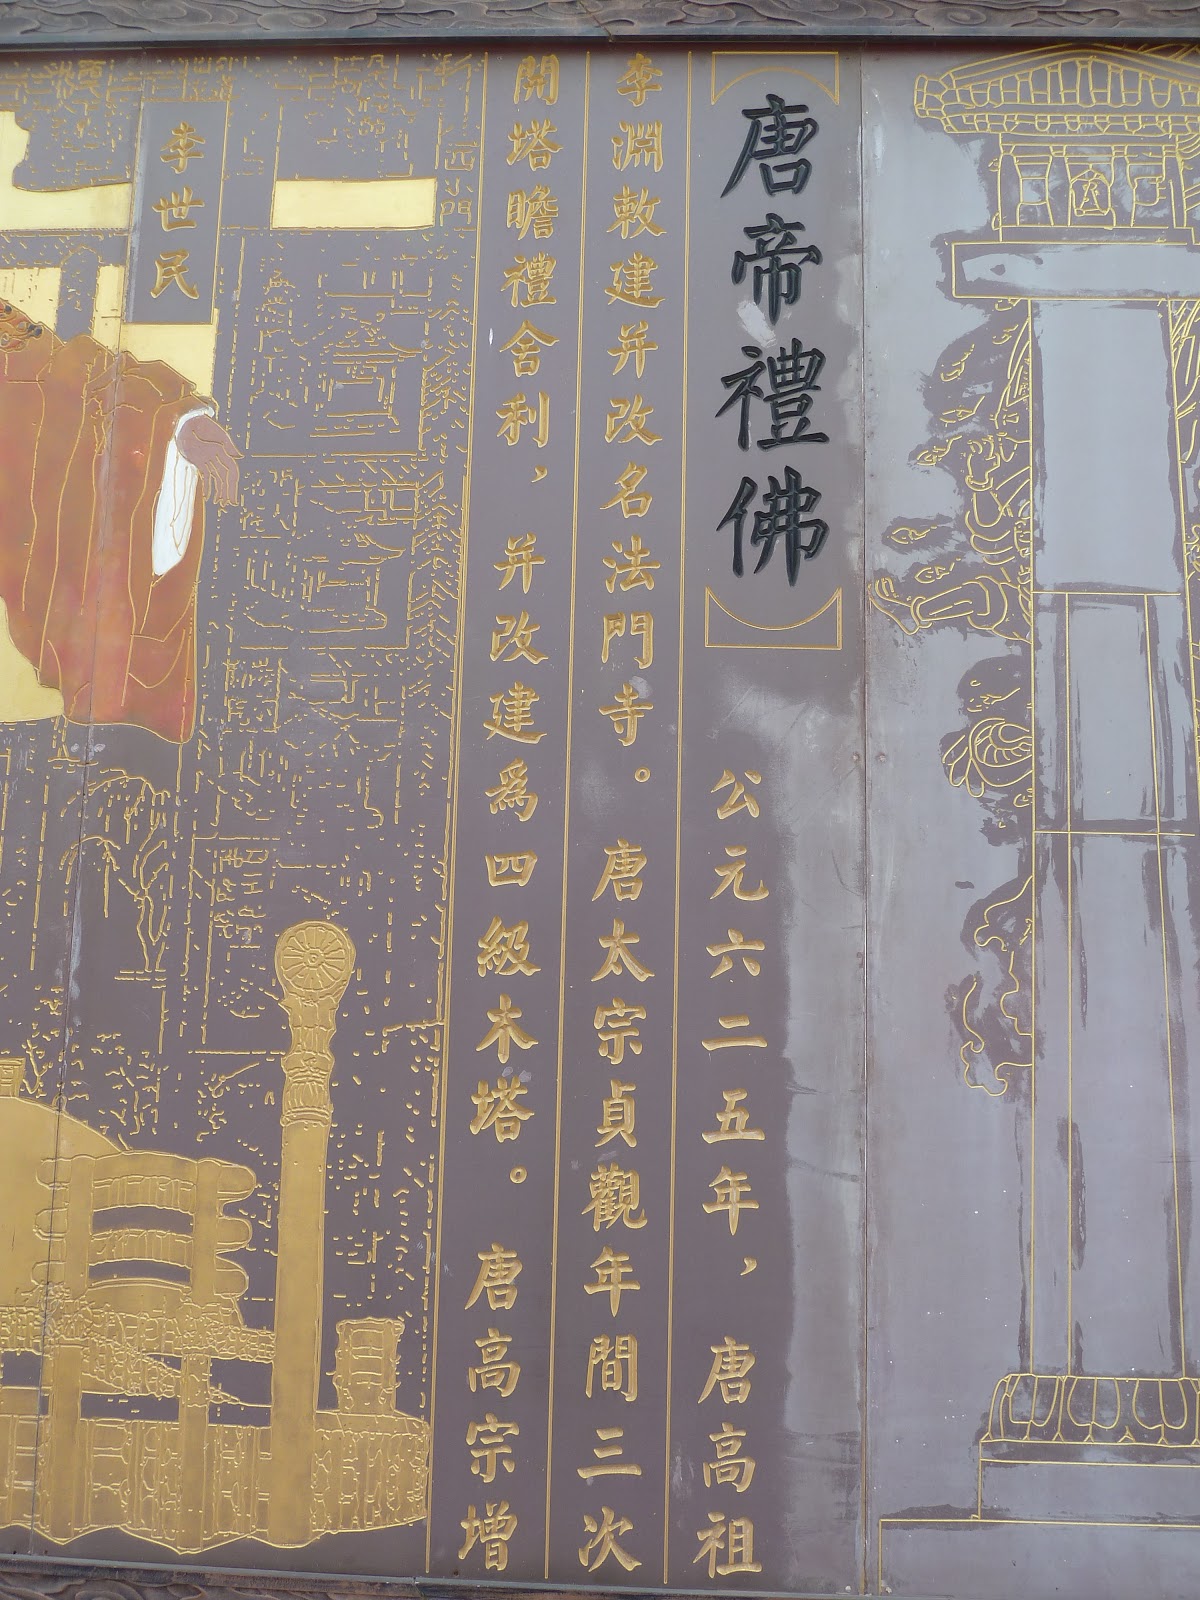 唐帝禮佛
公元六二五年，唐高祖
李淵敕建并改名法門寺。唐太宗貞觀年間三次
開塔瞻禮舍利，并改建爲四級木塔。唐高宗增
西小門
李世民